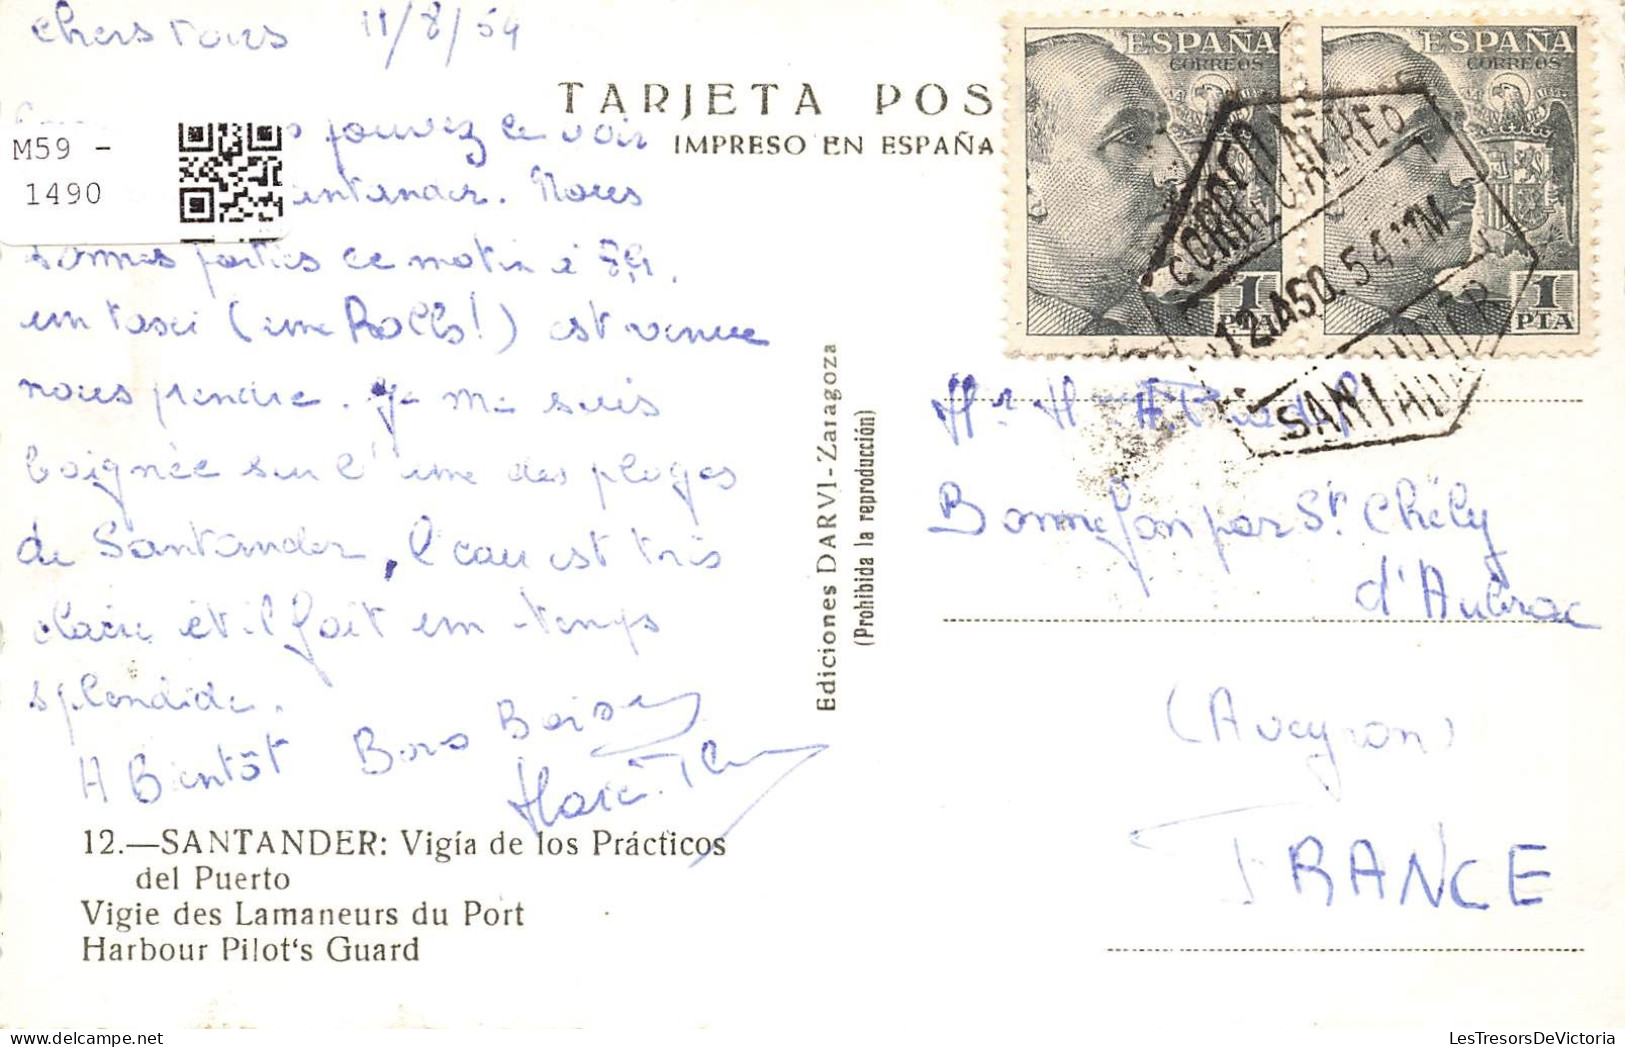 Chers Tous 11/8/54
TARJETA POS
IMPRESO EN ESPAÑA
M59 -
1490
pouvez le voir
Santander. Nous
sommes parties ce matin à
un taxi (une Rolls!) est venue
nous prendre. Je me suis
baignée sur l'une des plages
de Santander, l'eau est très
claire et il fait un temps
splendide.
A Bientôt Bons Baisers
12.—SANTANDER: Vigía de los Prácticos
del Puerto
Vigie des Lamaneurs du Port
Harbour Pilot's Guard
Ediciones DARVI - Zaragoza
(Prohibida la reproducción)
ESPAÑA
CORREOS
1
PTA
ESPAÑA
CORREOS
1
PTA
CORREO AEREO
12 AGO. 54
SANTANDER
Bonnefon par St Chély
d'Aubrac
(Aveyron)
FRANCE
LesTresorsDeVictoria